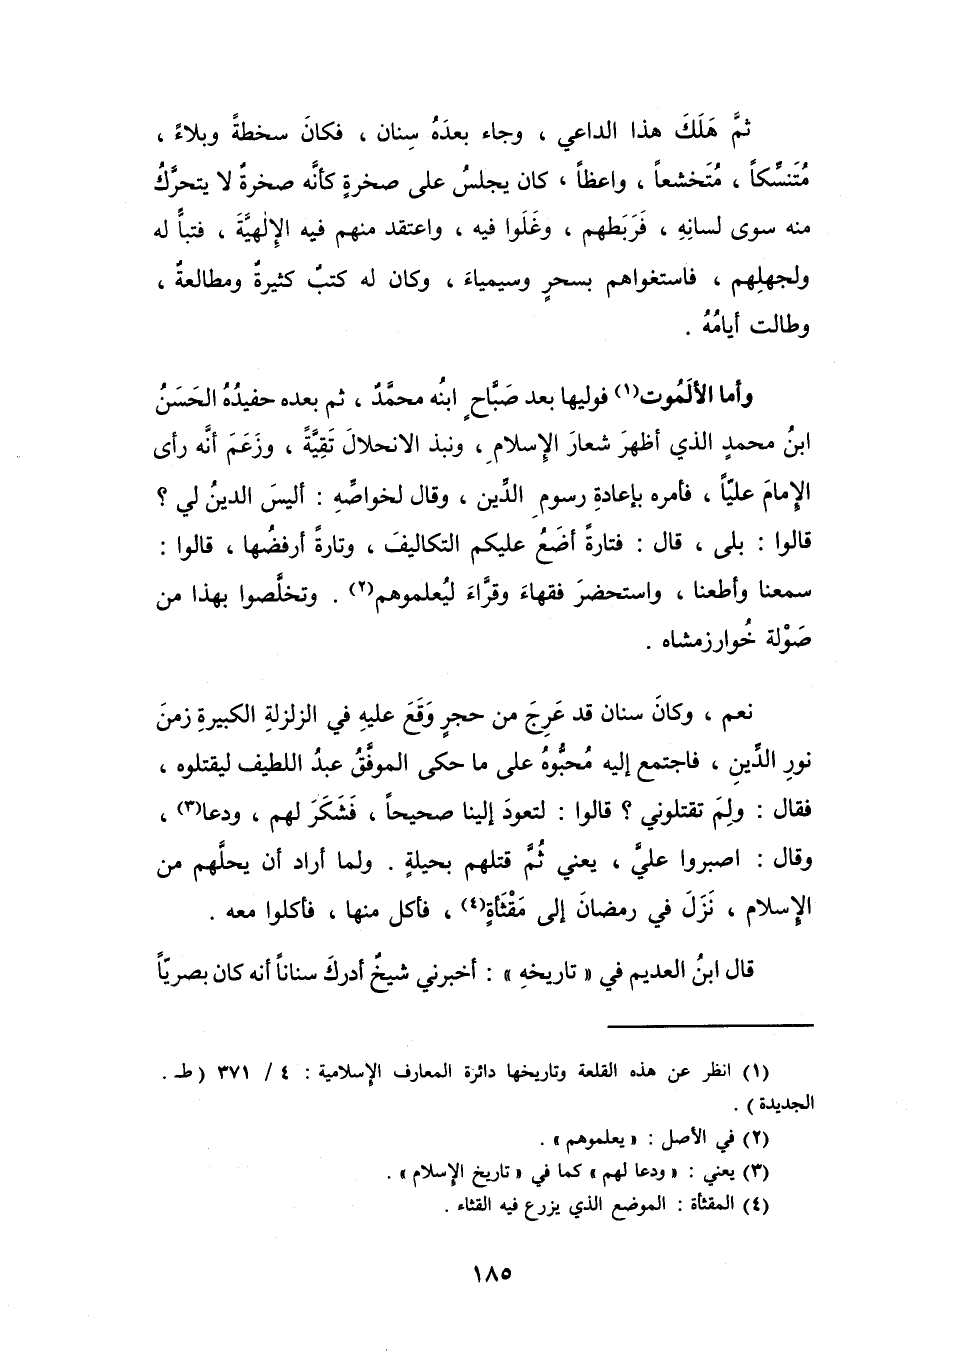 ثمَّ هَلَكَ هذا الداعي ، وجاء بعدَهُ سِنان ، فكانَ سخطةً وبلاءً ،
مُتَنسِّكاً ، مُتَخشعاً ، واعظاً ، كان يجلسُ على صخرةٍ كأنَّه صخرةٌ لا يتحرَّكُ
منه سوى لسانِهِ ، فَرَبَطهم ، وغَلَوا فيه ، واعتقد منهم فيه الإِلٰهيَّةَ ، فتباً له
ولجهلِهم ، فاستغواهم بسحرٍ وسيمياءَ ، وكان له كتبٌ كثيرةٌ ومطالعةٌ ،
وطالت أيامُهُ .
وأما الألَمُوت(١) فوليها بعد صَبَّاحٍ ابنُه محمَّدٌ ، ثم بعده حفيدُهُ الحَسَنُ
ابنُ محمدٍ الذي أظهرَ شعارَ الإِسلامِ ، ونبذ الانحلالَ تَقِيَّةً ، وزَعَمَ أنَّه رأى
الإِمامَ عليّاً ، فأمره بإعادةِ رسومِ الدِّين ، وقال لخواصِّهِ : أليسَ الدينُ لي ؟
قالوا : بلى ، قال : فتارةً أضَعُ عليكم التكاليفَ ، وتارةً أرفضُها ، قالوا :
سمعنا وأطعنا ، واستحضرَ فقهاءَ وقرَّاءَ ليُعلموهم(٢) . وتخلَّصوا بهذا من
صَوْلة خُوارزمشاه .
نعم ، وكانَ سنان قد عَرِجَ من حجرٍ وَقَعَ عليهِ في الزلزلةِ الكبيرةِ زمنَ
نورِ الدِّينِ ، فاجتمع إليه مُحبُّوهُ على ما حكى الموفَّقُ عبدُ اللطيف ليقتلوه ،
فقال : ولِمَ تقتلوني ؟ قالوا : لتعودَ إلينا صحيحاً ، فَشَكَرَ لهم ، ودعا(٣) ،
وقال : اصبروا عليَّ ، يعني ثُمَّ قتلهم بحيلةٍ . ولما أراد أن يحلَّهم من
الإِسلام ، نَزَلَ في رمضانَ إلى مَقْثَأةٍ(٤) ، فأكل منها ، فأكلوا معه .
قال ابنُ العديم في « تاريخهِ » : أخبرني شيخٌ أدركَ سناناً أنه كان بصريّاً
(١) انظر عن هذه القلعة وتاريخها دائرة المعارف الإسلامية : ٤ / ٣٧١ ( ط .
الجديدة ) .
(٢) في الأصل : « يعلموهم » .
(٣) يعني : « ودعا لهم » كما في « تاريخ الإسلام » .
(٤) المقثأة : الموضع الذي يزرع فيه القثاء .
١٨٥